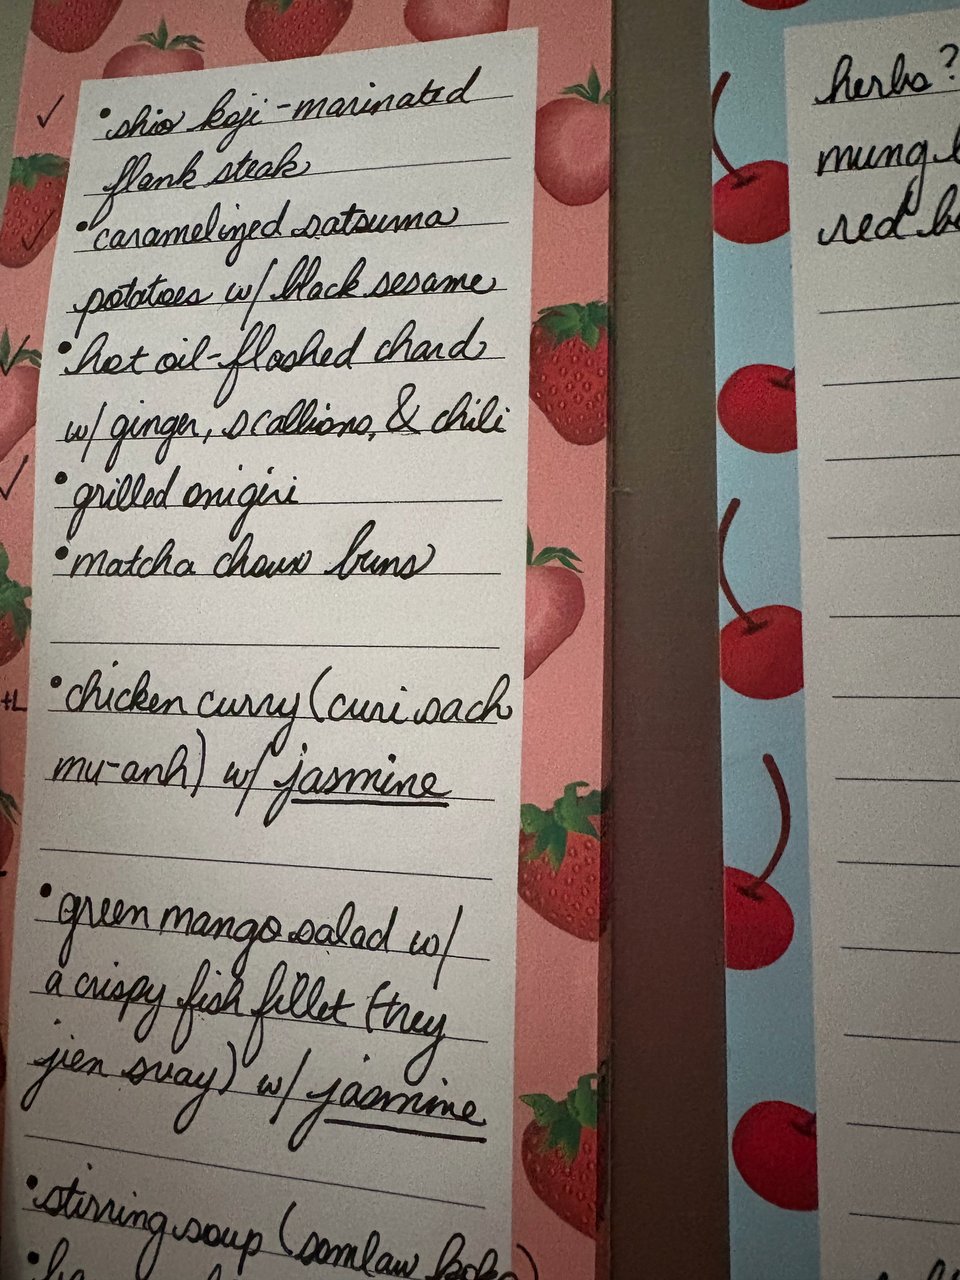 • shio koji-marinated
flank steak
• caramelized satsuma
potatoes w/ black sesame
• hot oil-flashed chard
w/ ginger, scallions, & chili
• grilled onigiri
• matcha choux buns
• chicken curry (curi sach
mu-anh) w/ jasmine
• green mango salad w/
a crispy fish fillet (trey
jien svay) w/ jasmine
• stirring soup (somlaw koko)
+L
herbs?
mung
red